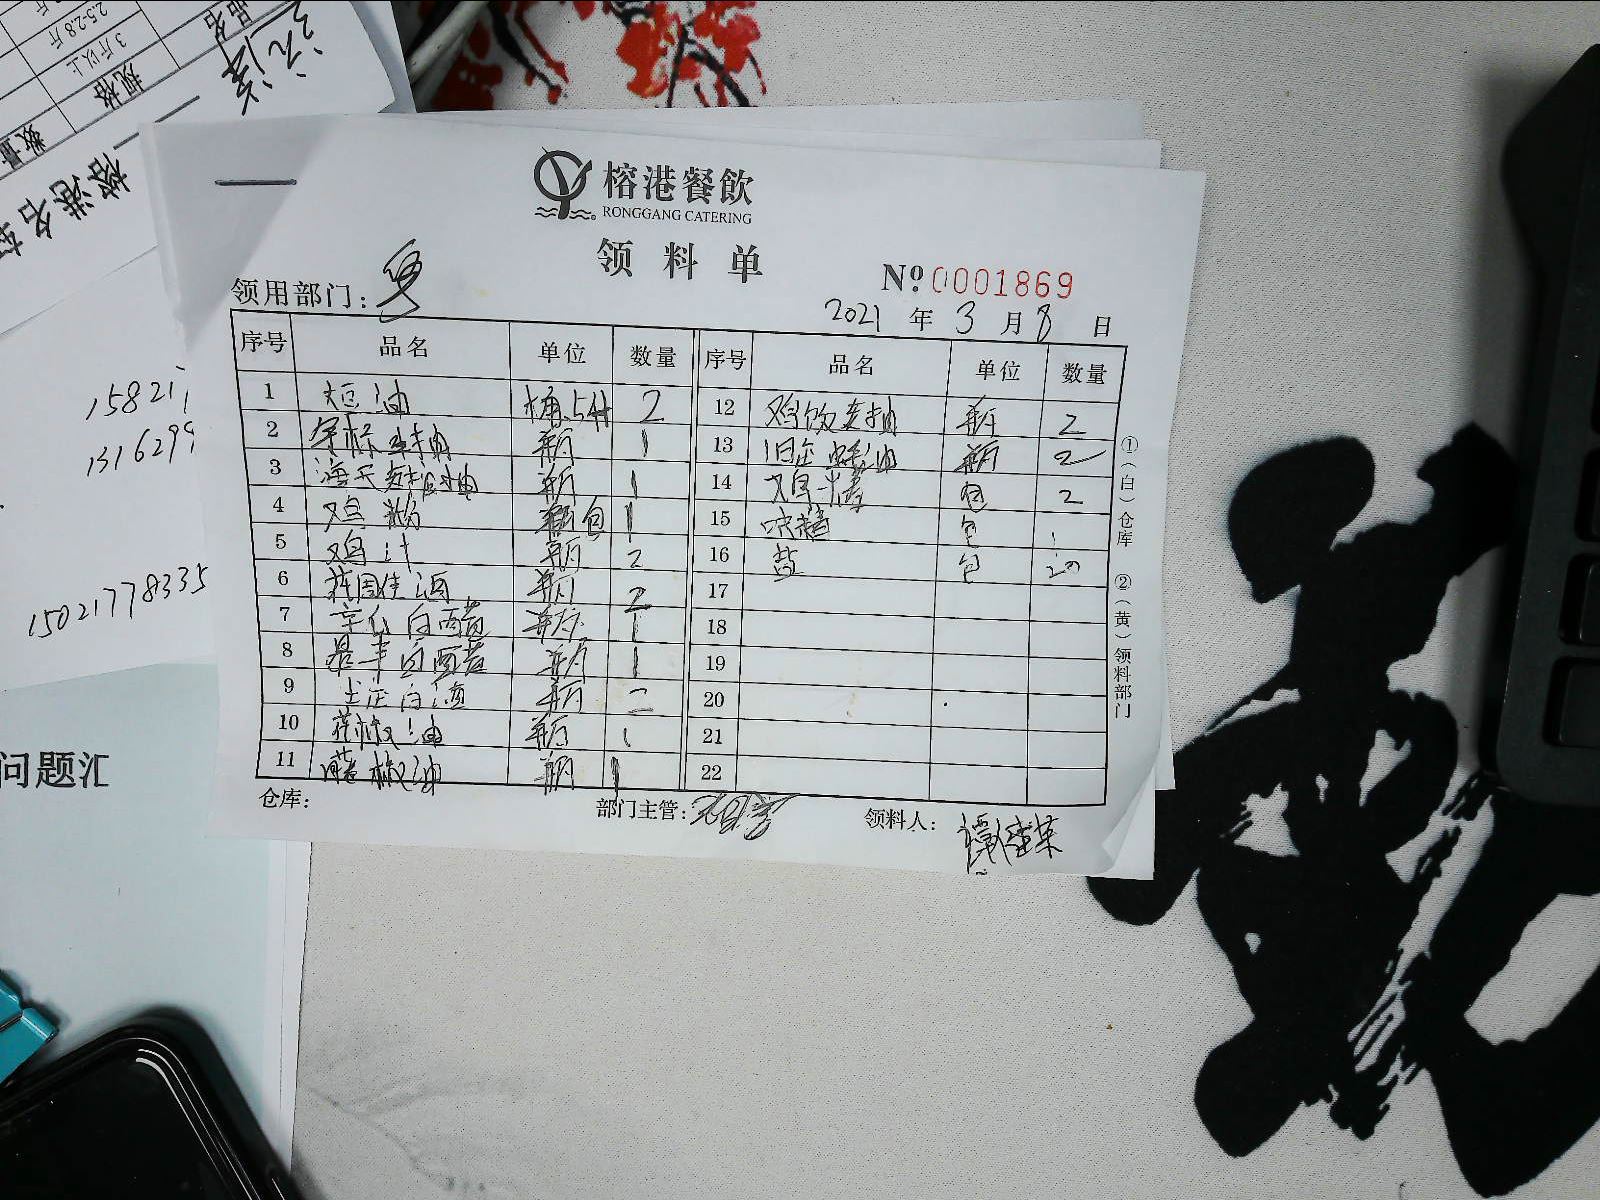 榕港餐飲
RONGGANG CATERING
领料单
领用部门:
№ 0001869
2021 年 3 月 8 日
序号 品名 单位 数量 序号 品名 单位 数量
1 大豆油 桶.5升 2
2 生抽 瓶 1
3 海天 抽 瓶 1
4 鸡粉 包 1
5 鸡汁 瓶 2
6 酒 瓶 2
7 白醋 瓶 1
8 白醋 瓶 1
9 白酒 瓶 2
10 花椒油 瓶 1
11 藤椒油 瓶 1
12 鸡饭老抽 瓶 2
13 旧庄蚝油 瓶 2
14 鸡精 包 2
15 味精 包 1
16 盐 包 20
17
18
19
20
21
22
①(白)仓库 ②(黄)领料部门
仓库:
部门主管:
领料人:
品名
规格
数量
3斤以上
2.5-2.8斤
榕港名
15821
131629
15021778335
问题汇